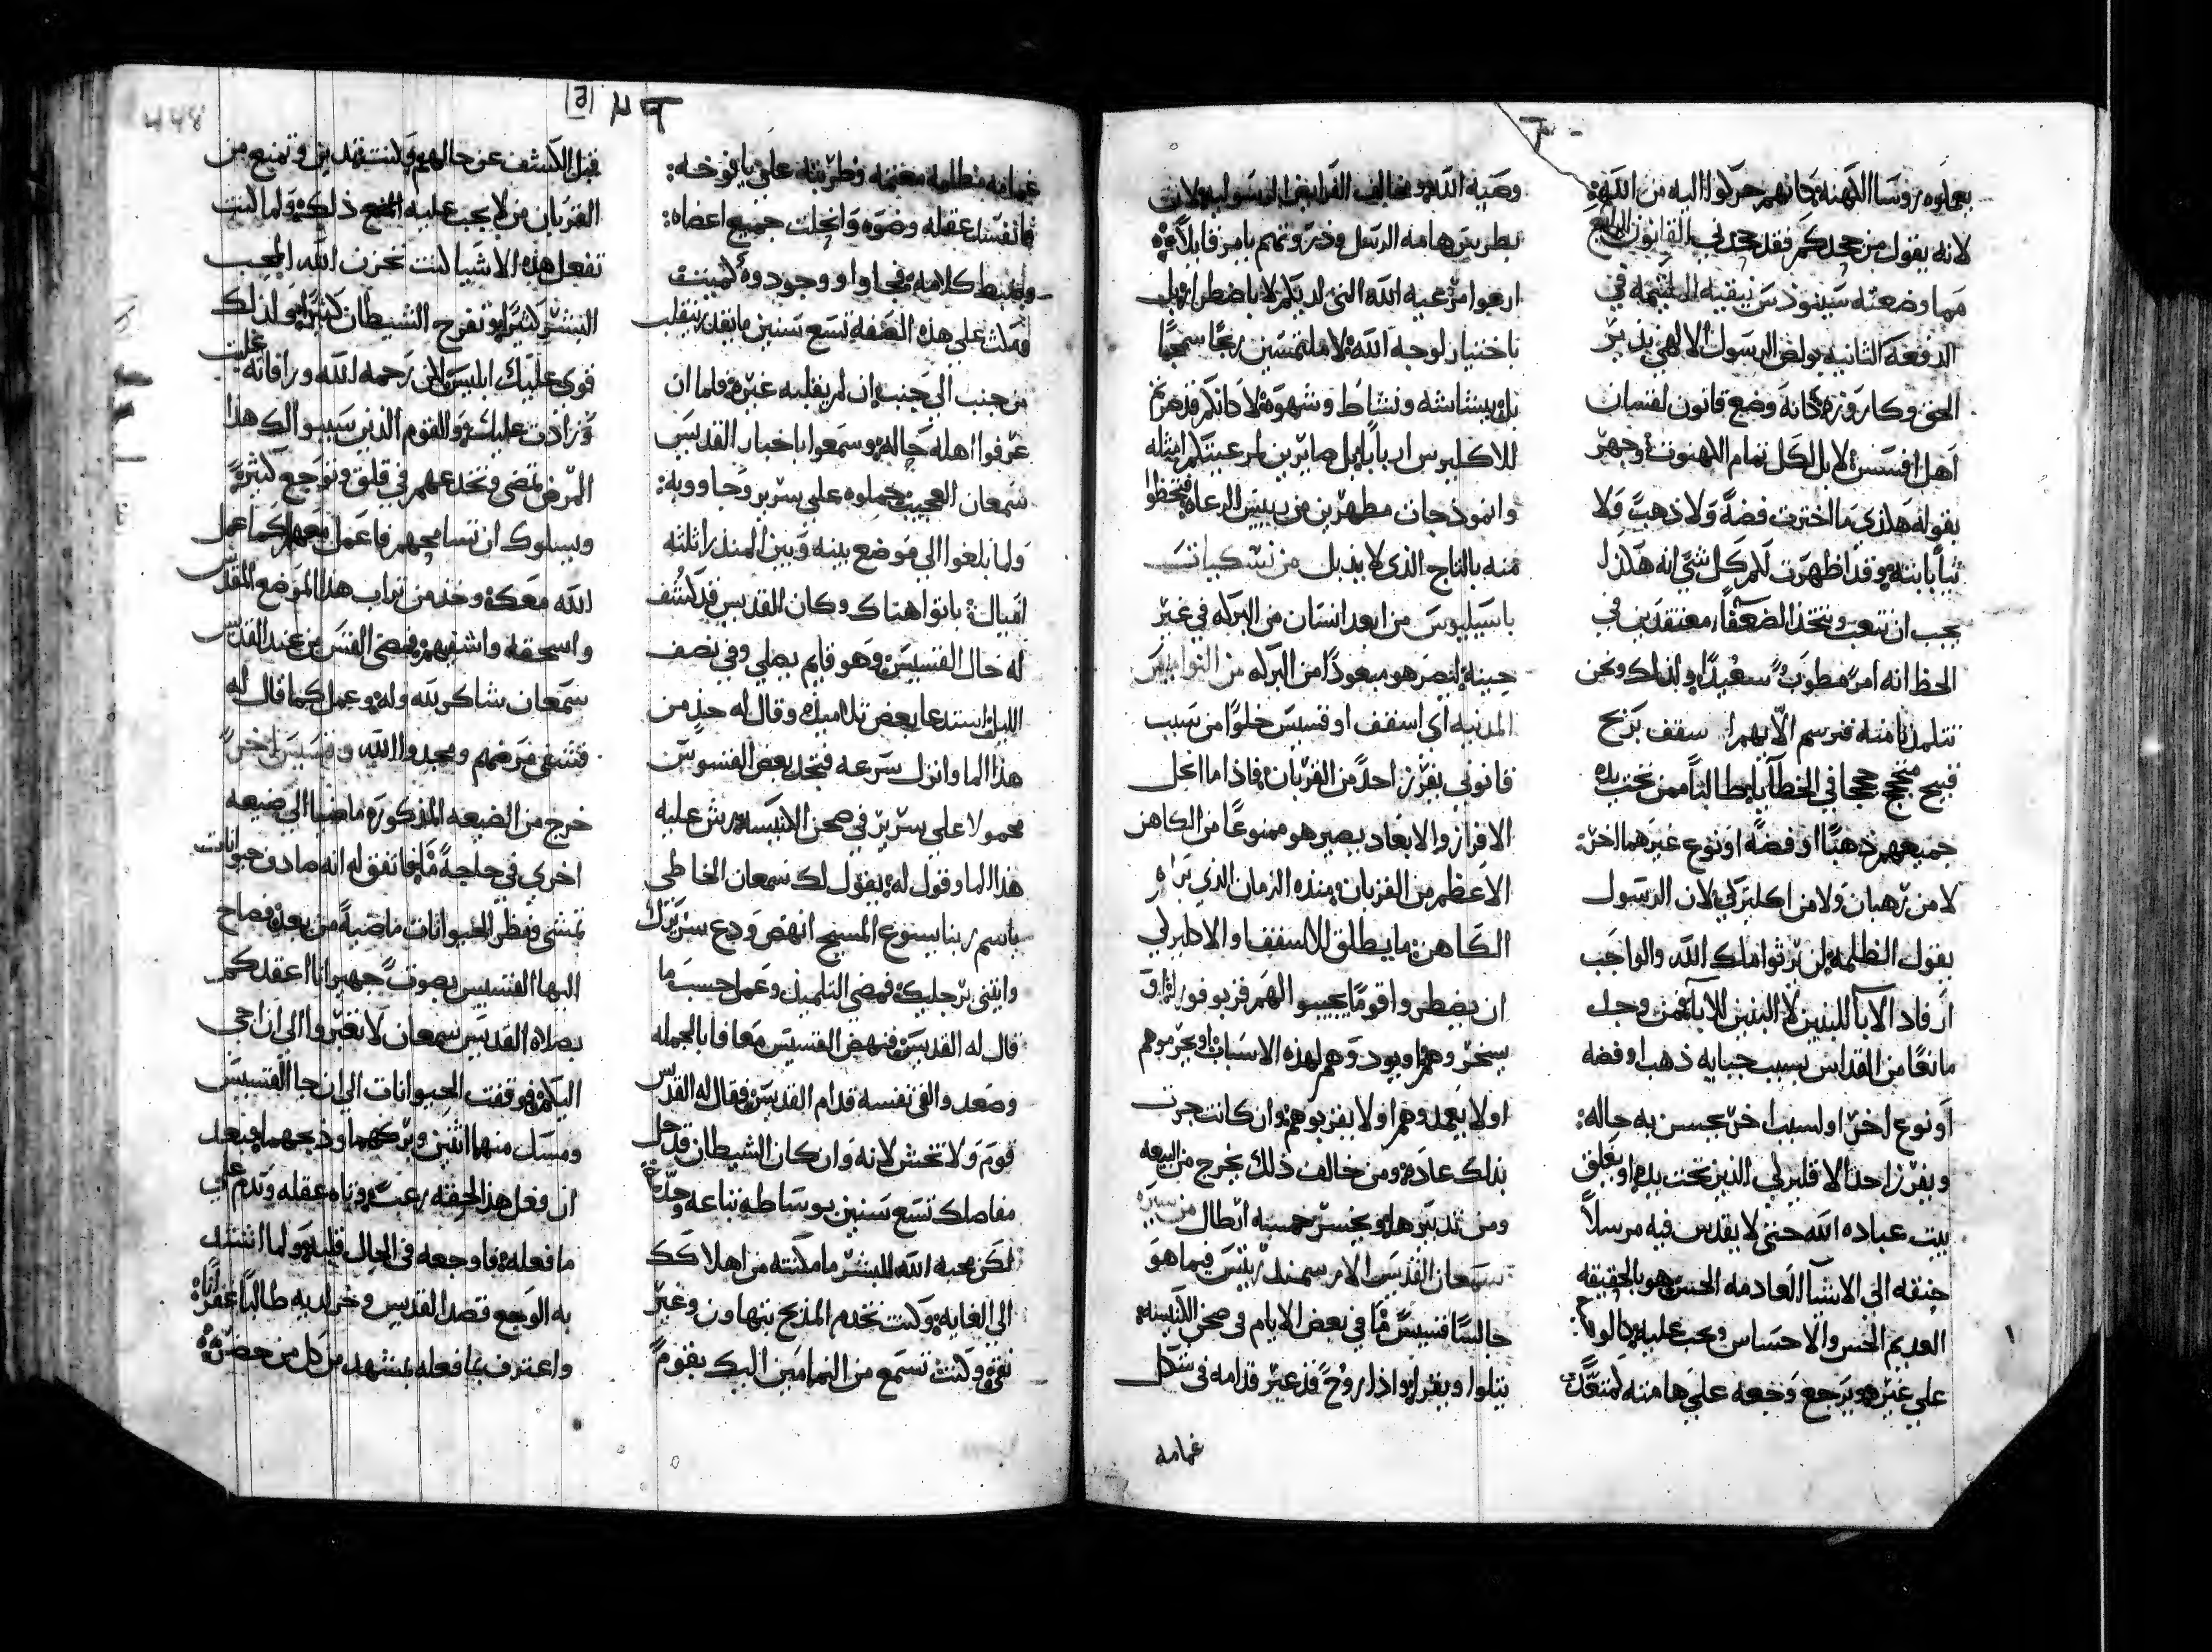 يعملوه روسا الكهنه كانهم حركوا اليه من الله
لانه يقول من جحدكم فقد جحدني القانون الرابع
مما وضعته سينوذس نيقيه الملتيمه في
الدفعة الثانيه بولص الرسول الالهي نذير
الحق وكاروزه كانه وضع قانون لقسان
اهل افسس لا بل لكل تمام الكهنوت وجهر
بقوله هكذي ما اخترت فضة ولا ذهب ولا
ثيابا بته وقد اظهرت لكم كل شي انه هكذا
يجب ان نتعب ونتخذ الضعفا معتقدين في
الحظ انه امر مطوب سعيدا ولذلك ونحن
نتلمذنا منه فنرسم الا يهم اسقف بربح
قبيح محتج حججا في الخطا يا يطالبا ممن تحت يده
جميعهم ذهبا او فضه او نوع غيرهما اخر
لا من رهبان ولا من اكليركي لان الرسول
يقول الظلمه لن يرثوا ملك الله والواجب
ارفاد الابا للبنين لا البنين للابا فمن وجد
مانعا من القداس بسبب جبايه ذهب او فضه
او نوع اخر او لسبب اخر يحسن به حاله
ويفرز احد الاقليركي الذين تحت يده او يغلق
بيت عباده الله حتى لا يقدس فيه مرسلا
حنقه الى الاشيا العادمه الحس هو بالحقيقه
العديم الحس والاحساس ويجب عليه
على غيره ويرجع وجعه على هامته كمتعدي
وصية الله ومخالف الفرايض الرسوليه لان
بطرس هامه الرسل وذروتهم يامر قايلا
ارعوا مرعيه الله التي لديكم لا باضطرار بل
باختيار لوجه الله لا ملتمسين ربحا سمجا
بل ببشاشه ونشاط وشهوة لا كانكم قد صرتم
للاكليرس اربابا بل صايرين لرعيتكم امثله
وانموذجات مطهرين من رييس الرعاه فتحظوا
منه بالتاج الذي لا يذبل من نسكيات
باسيليوس من ابعد انسان من البركه في غير
حينه ليصر هو مبعودا من البركه من النواميس
المدنيه اي اسقف او قسيس خلوا من سبب
قانوني يفرز احدا من القربان فاذا ما انحل
الافراز والابعاد يصير هو ممنوعا من الكاهن
الاعظم من القربان منده الزمان الذي يراه
الكاهن ما يطلق للاسقف او الاكليركي
ان يضطروا قوما يجيبوا الهم قربوفورا او
سخر وهم او يودوهم لهذه الاسباب او يحرموهم
او لا يعمدوهم او لا يقربوهم وان كانت جرت
بذلك عاده ومن خالف ذلك يخرج من البيعه
ومن تدبيرها ويخسر خمسه ارطال من سيره
سمعان القديس الارسمندريتس فيما هو
جالسا قسيس ما في بعض الايام في صحن الكنيسه
يتلوا ويقرا واذا روح قد عبر قدامه في شكل
غمامه
غمامه مظلمه مغتمه وطربته على يافوخه
فانفسد عقله وضوه وانحلت جميع اعضاه
وانضبط كلامه وجاوا ووجوده كميت
فمكث على هذه الصفه تسع سنين ما يقدر ينقلب
من جنب الى جنب ان لم يقلبه غيره ولما ان
عرفوا اهله حاله وسمعوا باخبار القديس
سمعان العجيب حملوه على سرير وجاووبه
ولما بلغوا الى موضع بينه وبين المندرا ثلثه
اميال باتوا هناك وكان القديس قد كشف
له حال القسيس وهو قايم يصلي وفي نصف
الليل استدعا بعض تلاميذه وقال له خذ من
هذا الما وانزل سرعه فتجد بعض القسوس
محمولا على سرير في صحن الكنيسه رش عليه
هذا الما وقول له يقول لك سمعان الخاطي
باسم ربنا يسوع المسيح انهض ودع سريرك
وايتني برجليك فمضى التلميذ وعمل حسب ما
قال له القديس فنهض القسيس معافا بالجمله
وصعد والقى نفسه قدام القديس فقال له القديس
قوم ولا تخش لانه وان كان الشيطان قد حل
مفاصلك تسع سنين بوساطه تباعه وحده
لكن محبه الله للبشر ما مكنته من اهلاكك
الى الغايه وكنت تخدم المذبح بتهاون وغير
نقي وكنت تسمع من النمامين اليك بقوم
قبل الكشف عن حالهم وكنت تهدين وتمنع من
القربان من لا يجب عليه المنع ذلك ولما كنت
تفعل هذه الاشيا كنت تحزن الله المحب
البشر كثيرا وتفرح الشيطان كثيرا ولذلك
قوى عليك ابليس لان رحمه الله ورافاته غلبت
وزادت عليك والقوم الذين سببوا لك هذا
المرض تمضي وتجدهم في قلق وتوجع كثيرة
ويسلوك ان تسامحهم فاعمل معهم كما عمل
الله معك وخذ من تراب هذا الموضع المقدس
واسحقه واشفيهم فمضى القس من عند القديس
سمعان شاكر لله وله وعمل كما قال له
فشفى مرضهم ومجدوا الله وقسيس اخر
خرج من الضيعه المذكوره ماضيا الى ضيعه
اخرى في حاجة ما فاتفق له انه صادف حيوانات
تمشي ونظر الحيوانات ماضية من بعده فصاح
اليها القسيس بصوت جهير انا اعقدكم
بصلاه القديس سمعان لا تعبروا الى ان اجي
اليكم فوقفت الحيوانات الى ان جا القسيس
ومسك منها اثنين وبركهما وذبحهما وبعد
ان فعل هذا لحقته رعب وتاه عقله وندم على
ما فعله فاوجعه في الحال قلبه ولما اشتد
به الوجع قصد القديس وخر لديه طالبا غفرانا
واعترف بما فعله بمشهد من كل من حضر